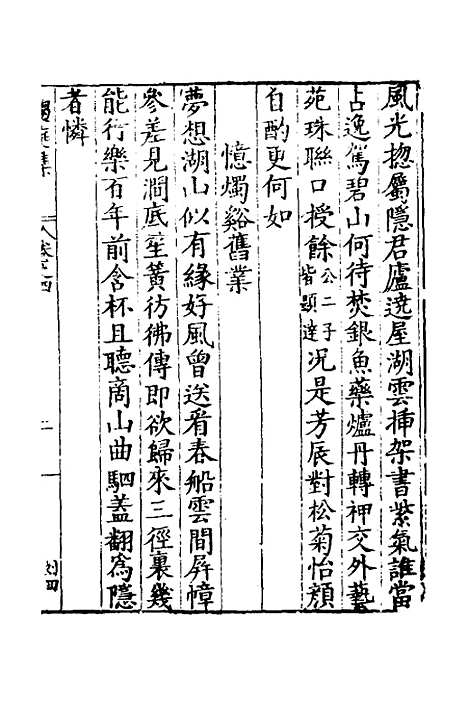 風光捴屬隱君廬遶屋湖雲揷架書紫氣誰當
占逸駕碧山何待焚銀魚藥爐丹轉神交外藝
苑珠聯口授餘公二子皆顯達况是芳辰對松菊怡顔
自酌更何如
憶燭谿舊業
夢想湖山似有緣好風曾送看春船雲間屏幛
參差見澗底笙簧彷彿傳即欲歸來三徑裏幾
能行樂百年前含杯且聽商山曲駟葢翻為隱
者憐